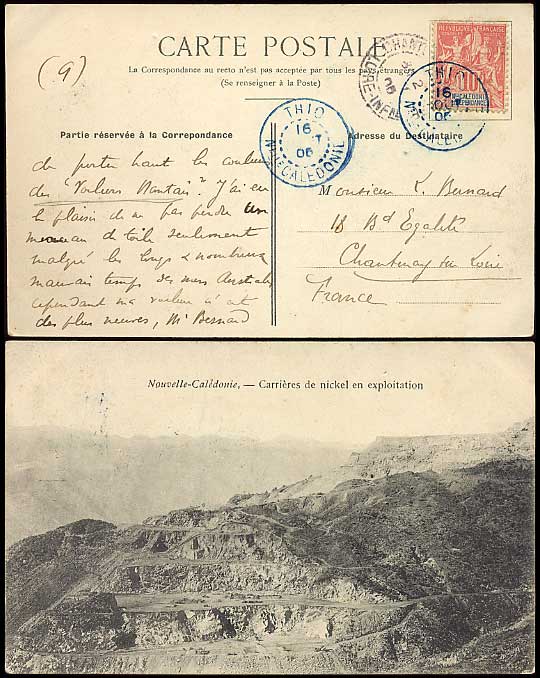 (9)
CARTE POSTALE
La Correspondance au recto n'est pas acceptée par tous les pays étrangers
(Se renseigner à la Poste)
RÉPUBLIQUE FRANÇAISE
10
Nlle CALÉDONIE
ET DÉPENDANCES
CHANT
LOIRE INFRE
06
THIO
16
OCT
06
Nlle CALEDONIE
THIO
16
OCT
06
Nlle CALEDONIE
Partie réservée à la Correpondance
Adresse du Destinataire
de porter haut les couleurs
des "Voiliers Nantais". J'ai eu
le plaisir de ne pas perdre un
morceau de toile seulement
malgré les longs & nombreux
mauvais temps des mers Australes
cependant ma voilure
des plus neuves, Mr Bernard
Monsieur K. Bernard
18 Bd Egalité
Chantenay sur Loire
France
Nouvelle-Calédonie, — Carrières de nickel en exploitation